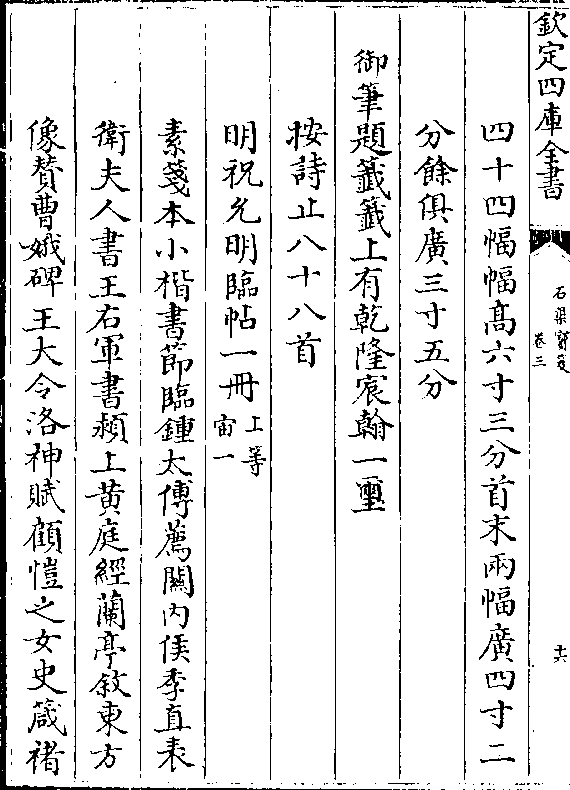 欽定四庫全書
石渠寳笈
卷三
十六
四十四幅幅髙六寸三分首末兩幅廣四寸二
分餘俱廣三寸五分
御筆題籖籖上有乾隆宸翰一璽
按詩止八十八首
明祝允明臨帖一冊上等
宙一
素箋本小楷書節臨鍾太傅薦關内侯季直表
衛夫人書王右軍書頴上黄庭經蘭亭敘東方
像賛曹娥碑王大令洛神賦顧愷之女史箴褚